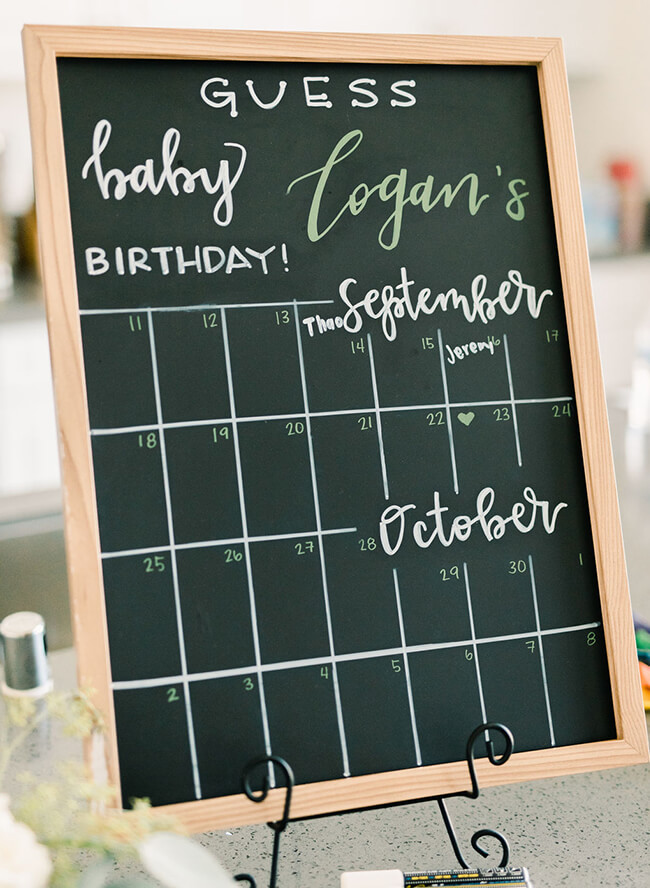 GUESS
baby Logan's
BIRTHDAY!
September
11 12 13 Thao 14 15 Jeremy 16 17
18 19 20 21 22 ♥ 23 24
October
25 26 27 28 29 30 1
2 3 4 5 6 7 8